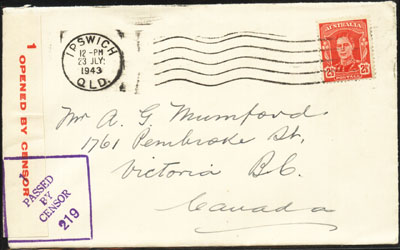 IPSWICH
12-PM
23 JLY:
1943
QLD.
AUSTRALIA
2½ 2½
1 OPENED BY CENSOR
PASSED
BY
CENSOR
219
Mr A. G. Mumford
1761 Pembroke St,
Victoria B.C.
Canada